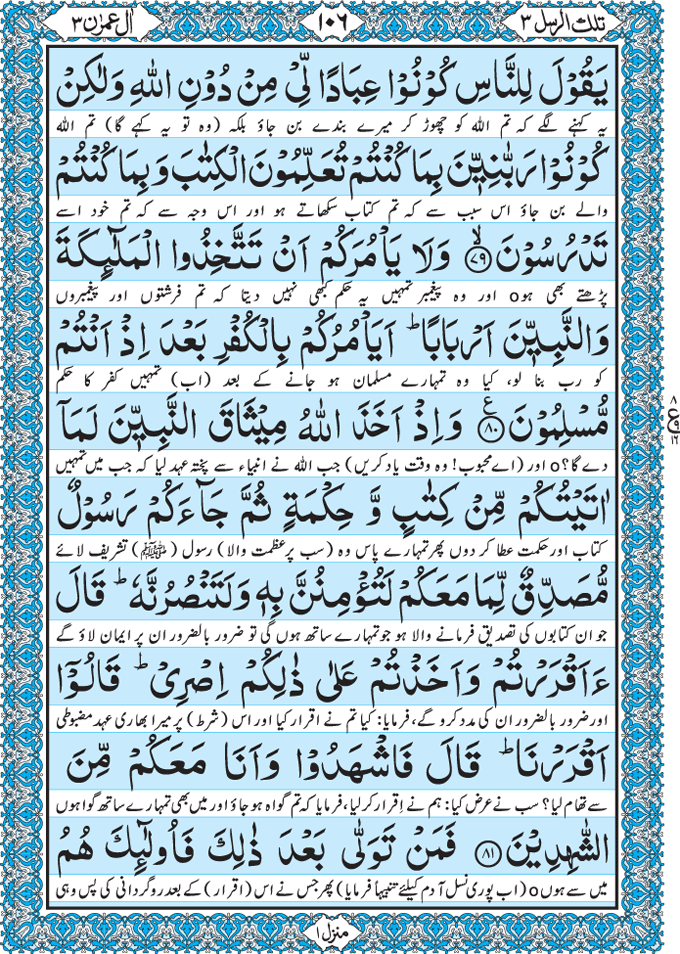 تلك الرسل ٣
١٠٦
اٰل عمرٰن ٣
يَقُوْلَ لِلنَّاسِ كُوْنُوْا عِبَادًا لِّيْ مِنْ دُوْنِ اللّٰهِ وَلٰكِنْ
یہ کہنے لگے کہ تم اللہ کو چھوڑ کر میرے بندے بن جاؤ بلکہ (وہ تو یہ کہے گا) تم اللہ
كُوْنُوْا رَبّٰنِيّٖنَ بِمَا كُنْتُمْ تُعَلِّمُوْنَ الْكِتٰبَ وَبِمَا كُنْتُمْ
والے بن جاؤ اس سبب سے کہ تم کتاب سکھاتے ہو اور اس وجہ سے کہ تم خود اسے
تَدْرُسُوْنَ ۙ﴿٧٩﴾ وَلَا يَاْمُرَكُمْ اَنْ تَتَّخِذُوا الْمَلٰٓئِكَةَ
پڑھتے بھی ہوo اور وہ پیغمبر تمہیں یہ حکم کبھی نہیں دیتا کہ تم فرشتوں اور پیغمبروں
وَالنَّبِيّٖنَ اَرْبَابًا ؕ اَيَاْمُرُكُمْ بِالْكُفْرِ بَعْدَ اِذْ اَنْتُمْ
کو رب بنا لو، کیا وہ تمہارے مسلمان ہو جانے کے بعد (اب) تمہیں کفر کا حکم
مُّسْلِمُوْنَ ﴿٨٠﴾ ع وَاِذْ اَخَذَ اللّٰهُ مِيْثَاقَ النَّبِيّٖنَ لَمَاۤ
دے گا؟o اور (اے محبوب! وہ وقت یاد کریں) جب اللہ نے انبیاء سے پختہ عہد لیا کہ جب میں تمہیں
٨ ع ١٦
اٰتَيْتُكُمْ مِّنْ كِتٰبٍ وَّ حِكْمَةٍ ثُمَّ جَآءَكُمْ رَسُوْلٌ
کتاب اور حکمت عطا کر دوں پھر تمہارے پاس وہ (سب پر عظمت والا) رسول (ﷺ) تشریف لائے
مُّصَدِّقٌ لِّمَا مَعَكُمْ لَتُؤْمِنُنَّ بِهٖ وَلَتَنْصُرُنَّهٗ ؕ قَالَ
جو ان کتابوں کی تصدیق فرمانے والا ہو جو تمہارے ساتھ ہوں گی تو ضرور بالضرور ان پر ایمان لاؤ گے
ءَاَقْرَرْتُمْ وَاَخَذْتُمْ عَلٰى ذٰلِكُمْ اِصْرِيْ ؕ قَالُوْۤا
اور ضرور بالضرور ان کی مدد کرو گے، فرمایا: کیا تم نے اقرار کیا اور اس (شرط) پر میرا بھاری عہد مضبوطی
اَقْرَرْنَا ؕ قَالَ فَاشْهَدُوْا وَاَنَا مَعَكُمْ مِّنَ
سے تھام لیا؟ سب نے عرض کیا: ہم نے اِقرار کر لیا، فرمایا کہ تم گواہ ہو جاؤ اور میں بھی تمہارے ساتھ گواہوں
الشّٰهِدِيْنَ ﴿٨١﴾ فَمَنْ تَوَلّٰى بَعْدَ ذٰلِكَ فَاُولٰٓئِكَ هُمُ
میں سے ہوںo (اب پوری نسل آدم کیلئے تنبیہاً فرمایا) پھر جس نے اس (اقرار) کے بعد روگردانی کی پس وہی
منزل ١